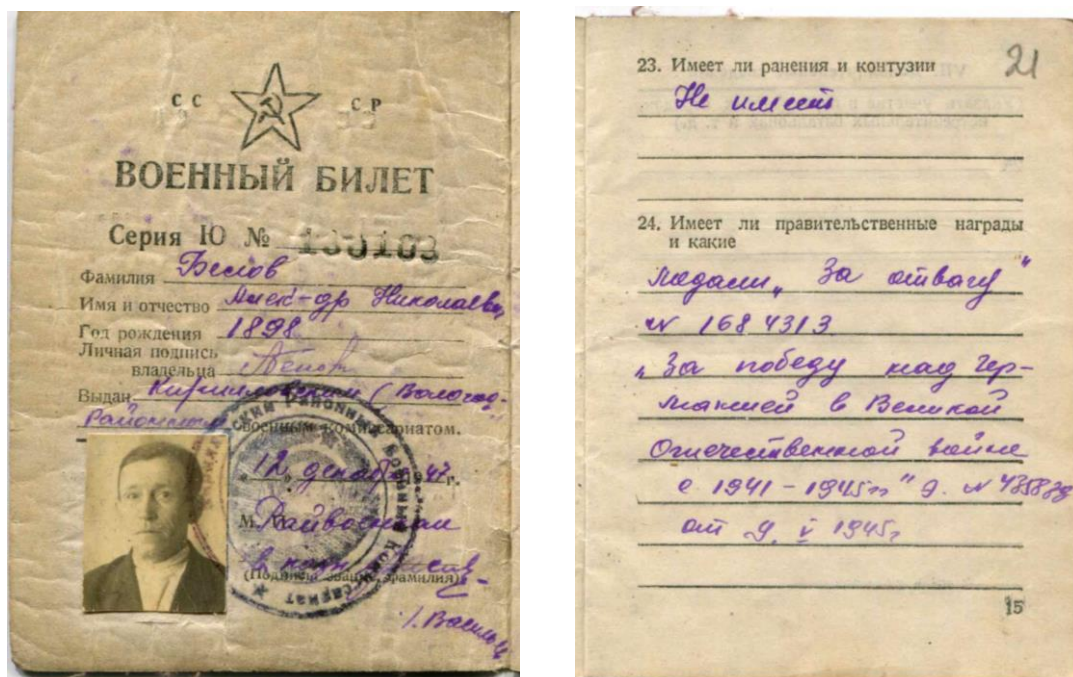 СС СР
ВОЕННЫЙ БИЛЕТ
Серия Ю №
Фамилия Белов
Имя и отчество Алек-др Николаевич
Год рождения 1898
Личная подпись
владельца
Выдан Кирилловским (Вологод.
Районным военным комиссариатом.
12 декабря 47 г.
М. Райвоенком
(Подпись, звание, фамилия)
21
23. Имеет ли ранения и контузии
Не имеет
24. Имеет ли правительственные награды
и какие
медали „За отвагу"
№ 1684313
„За победу над Гер-
манией в Великой
Отечественной войне
с 1941-1945гг" У. №
от 9. V 1945г
15